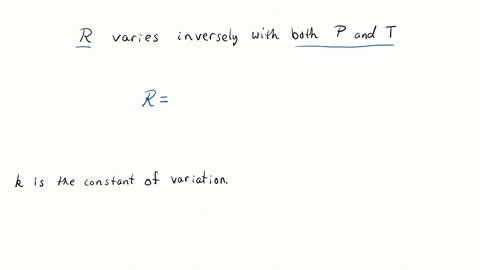 R varies inversely with both P and T
R =
k is the constant of variation.